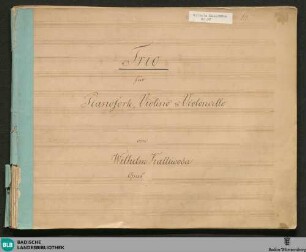 Trio
für
Pianoforte, Violine & Violoncello
von
Wilhelm Kalliwoda
BADISCHE
LANDESBIBLIOTHEK
Baden-Württemberg